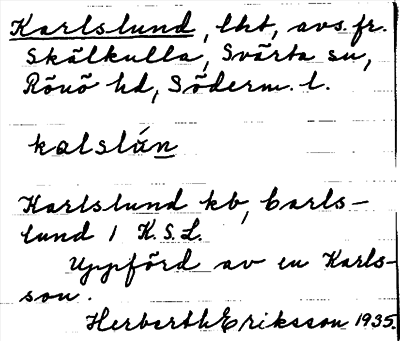 Karlslund, lht, avs. fr.
Skälkulla, Svärta sn,
Rönö hd, Söderm. l.
kalslún
Karlslund kb, Carls-
lund 1 K.S.L.
Uppförd av en Karls-
son.
Herbert Eriksson 1935.